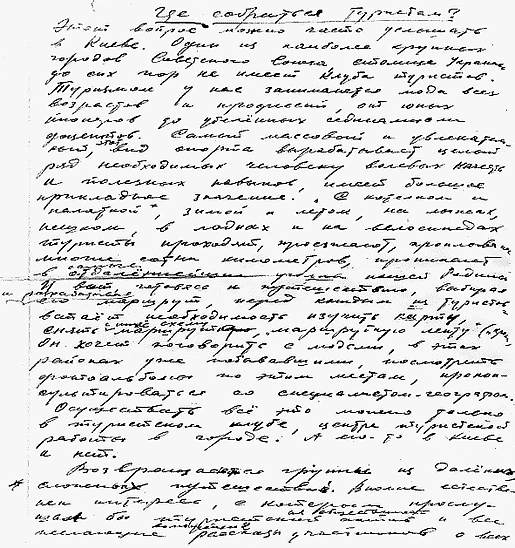 Где собраться туристам?
Этот вопрос можно часто услышать
в Киеве. Один из наиболее крупных
городов Советского Союза столица Украины
до сих пор не имеет клуба туристов.
Туризмом у нас занимаются люди всех
возрастов и профессий, от юных
пионеров до убелённых сединами
доцентов. Самый массовый и увлекатель-
ный, этот вид спорта вырабатывает целый
ряд необходимых человеку волевых качеств
и полезных навыков, имеет большое
прикладное значение. „С котелком и
палаткой", зимой и летом, на лыжах,
пешком, в лодках и на велосипедах
туристы проходят, проезжают, проплывают
многие сотни километров, проникают
в отдалённейшие уголки нашей Родины
И вот готовясь к путешествию, выбирая
его маршрут, перед каждым из туристов
встаёт необходимость изучить карту,
снять маршрутную ленту
Он хочет поговорить с людьми, в этих
районах уже побывавшими, посмотреть
фотоальбомы по этим местам, прокон-
сультироваться со специалистом-географом.
Осуществить всё это можно только
в туристском клубе, центре туристской
работы в городе. А его-то в Киеве
и нет.
Возвращаются группы из далёких
сложных путешествий. Вполне естестве-
нен интерес, с которым прослу-
шал бы туристский актив и все
желающие рассказы участников о всех